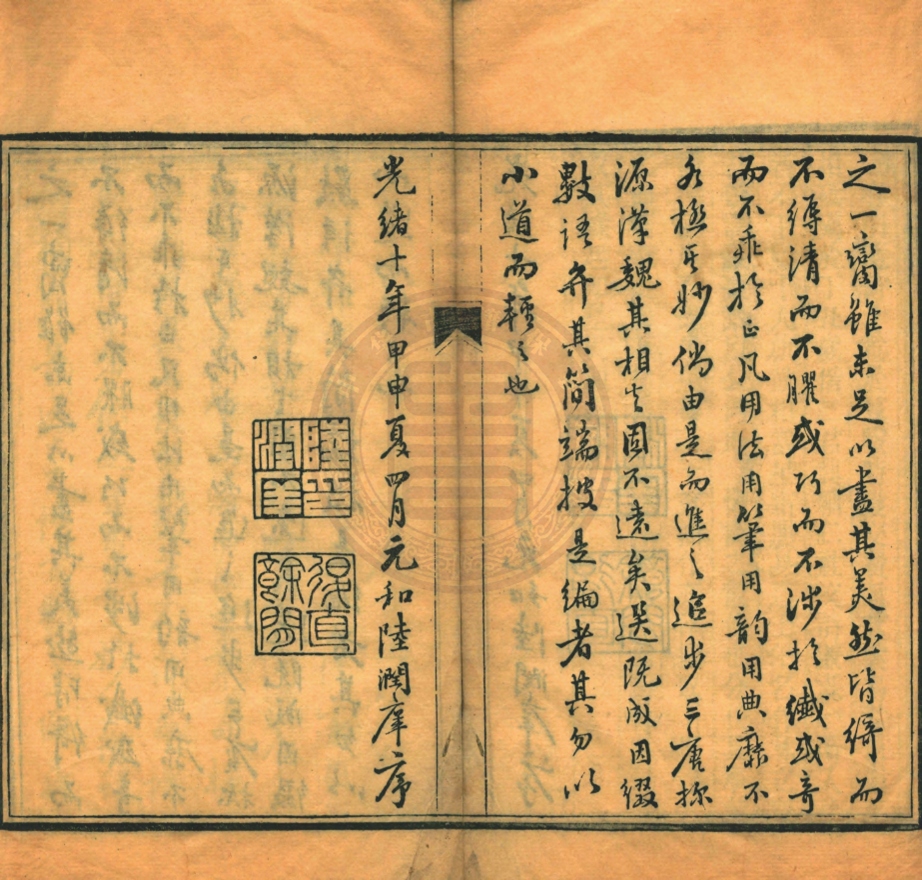 之一臠雖未足以盡其美然皆綺而
不縟清而不臞或巧而不涉於纖或奇
而不乖於正凡用法用筆用韵用典靡不
各極其妙倘由是而進之追步三唐探
源漢魏其相去固不遠矣選既成因綴
數語弁其簡端披是編者其勿以
小道而輕之也
光緒十年甲申夏四月元和陸潤庠序
陸印
潤庠
直
餘閒